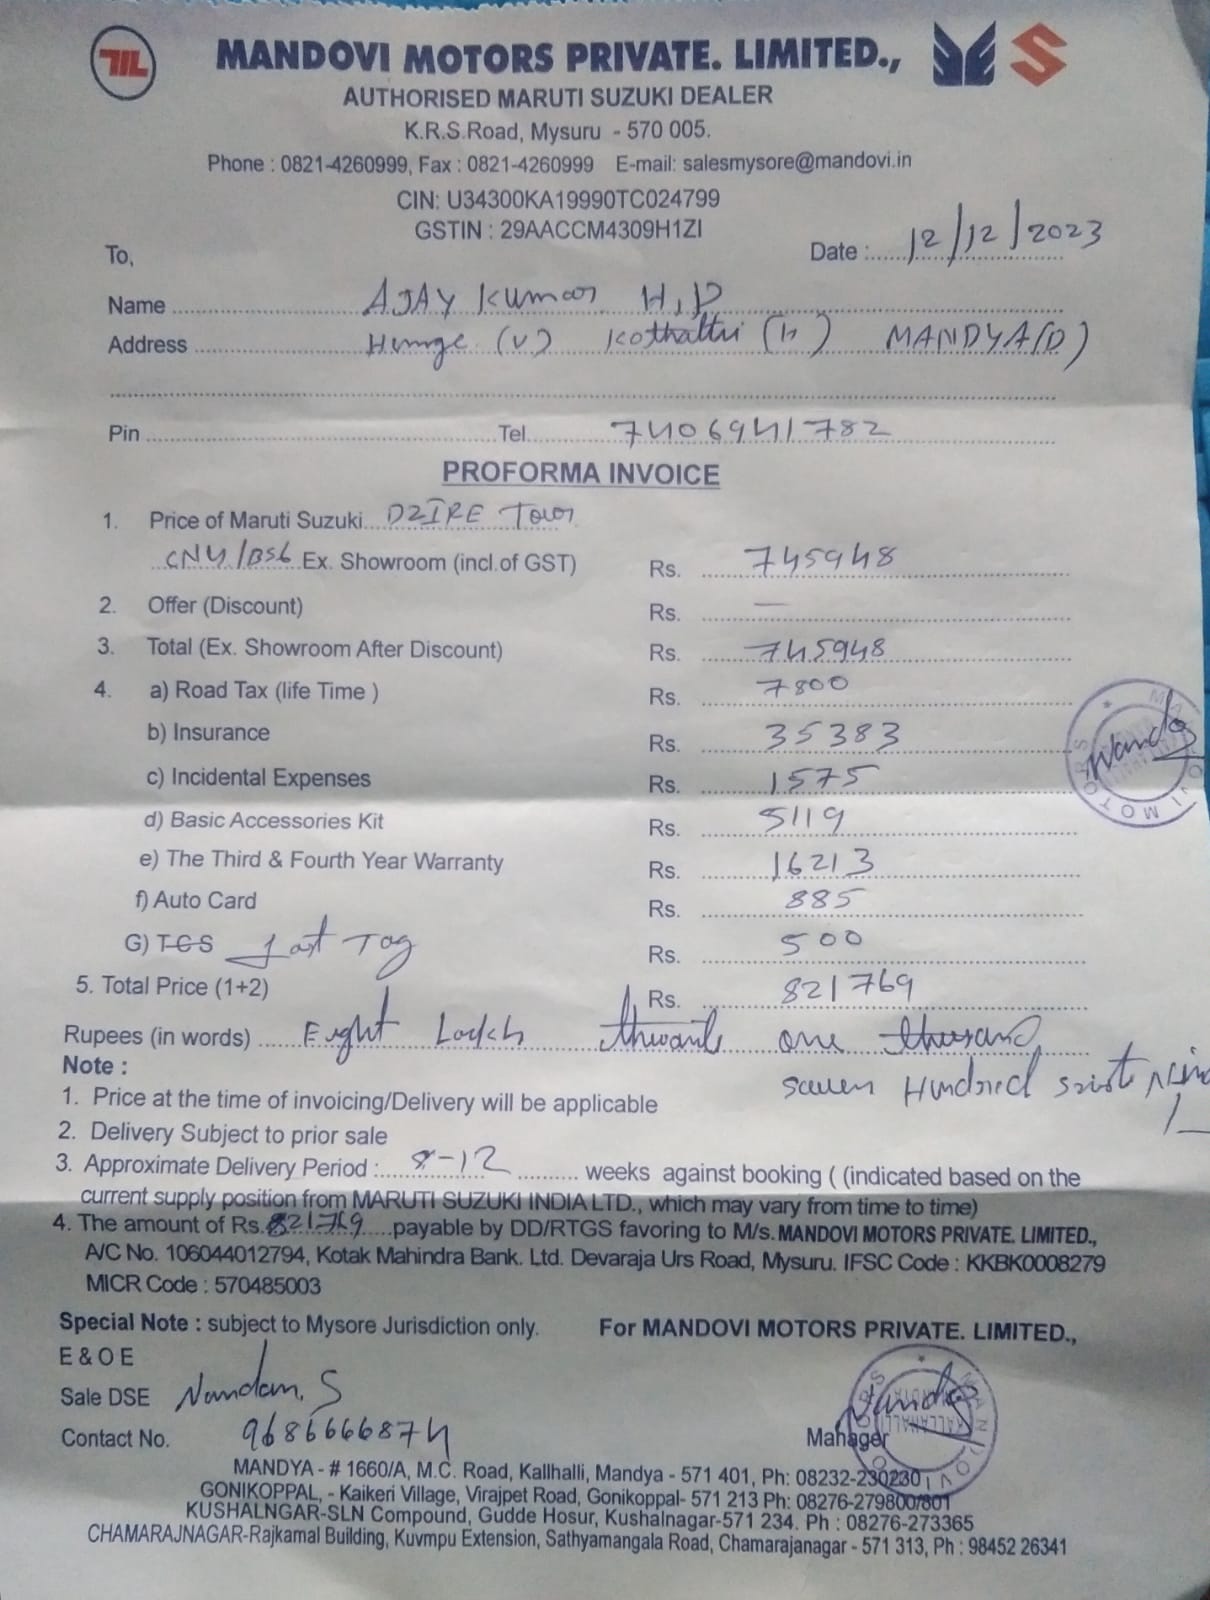 TIL MANDOVI MOTORS PRIVATE. LIMITED.,
AUTHORISED MARUTI SUZUKI DEALER
K.R.S.Road, Mysuru - 570 005.
Phone : 0821-4260999, Fax : 0821-4260999 E-mail: salesmysore@mandovi.in
CIN: U34300KA19990TC024799
GSTIN : 29AACCM4309H1ZI
To, Date : 12/12/2023
Name AJAY Kumar H.P
Address (V) Kothatthi (h) MANDYA(D)
Pin Tel. 7406941782
PROFORMA INVOICE
1. Price of Maruti Suzuki DZIRE Tour
CNG/BS6 Ex. Showroom (incl.of GST) Rs. 745948
2. Offer (Discount) Rs. —
3. Total (Ex. Showroom After Discount) Rs. 745948
4. a) Road Tax (life Time ) Rs. 7800
b) Insurance Rs. 35383
c) Incidental Expenses Rs. 1575
d) Basic Accessories Kit Rs. 5119
e) The Third & Fourth Year Warranty Rs. 16213
f) Auto Card Rs. 885
G) TCS fast Tag Rs. 500
5. Total Price (1+2) Rs. 821769
Rupees (in words) Eight Lackh one thousand
Note : Hundred
1. Price at the time of invoicing/Delivery will be applicable
2. Delivery Subject to prior sale
3. Approximate Delivery Period : 8-12 weeks against booking ( (indicated based on the
current supply position from MARUTI SUZUKI INDIA LTD., which may vary from time to time)
4. The amount of Rs. 821769 payable by DD/RTGS favoring to M/s. MANDOVI MOTORS PRIVATE. LIMITED.,
A/C No. 106044012794, Kotak Mahindra Bank. Ltd. Devaraja Urs Road, Mysuru. IFSC Code : KKBK0008279
MICR Code : 570485003
Special Note : subject to Mysore Jurisdiction only. For MANDOVI MOTORS PRIVATE. LIMITED.,
E & O E
Sale DSE Nandan. S
Contact No. 9686666874 Manager
MANDYA - # 1660/A, M.C. Road, Kallhalli, Mandya - 571 401, Ph: 08232-230230
GONIKOPPAL, - Kaikeri Village, Virajpet Road, Gonikoppal- 571 213 Ph: 08276-279800/801
KUSHALNGAR-SLN Compound, Gudde Hosur, Kushalnagar-571 234. Ph : 08276-273365
CHAMARAJNAGAR-Rajkamal Building, Kuvmpu Extension, Sathyamangala Road, Chamarajanagar - 571 313, Ph : 98452 26341